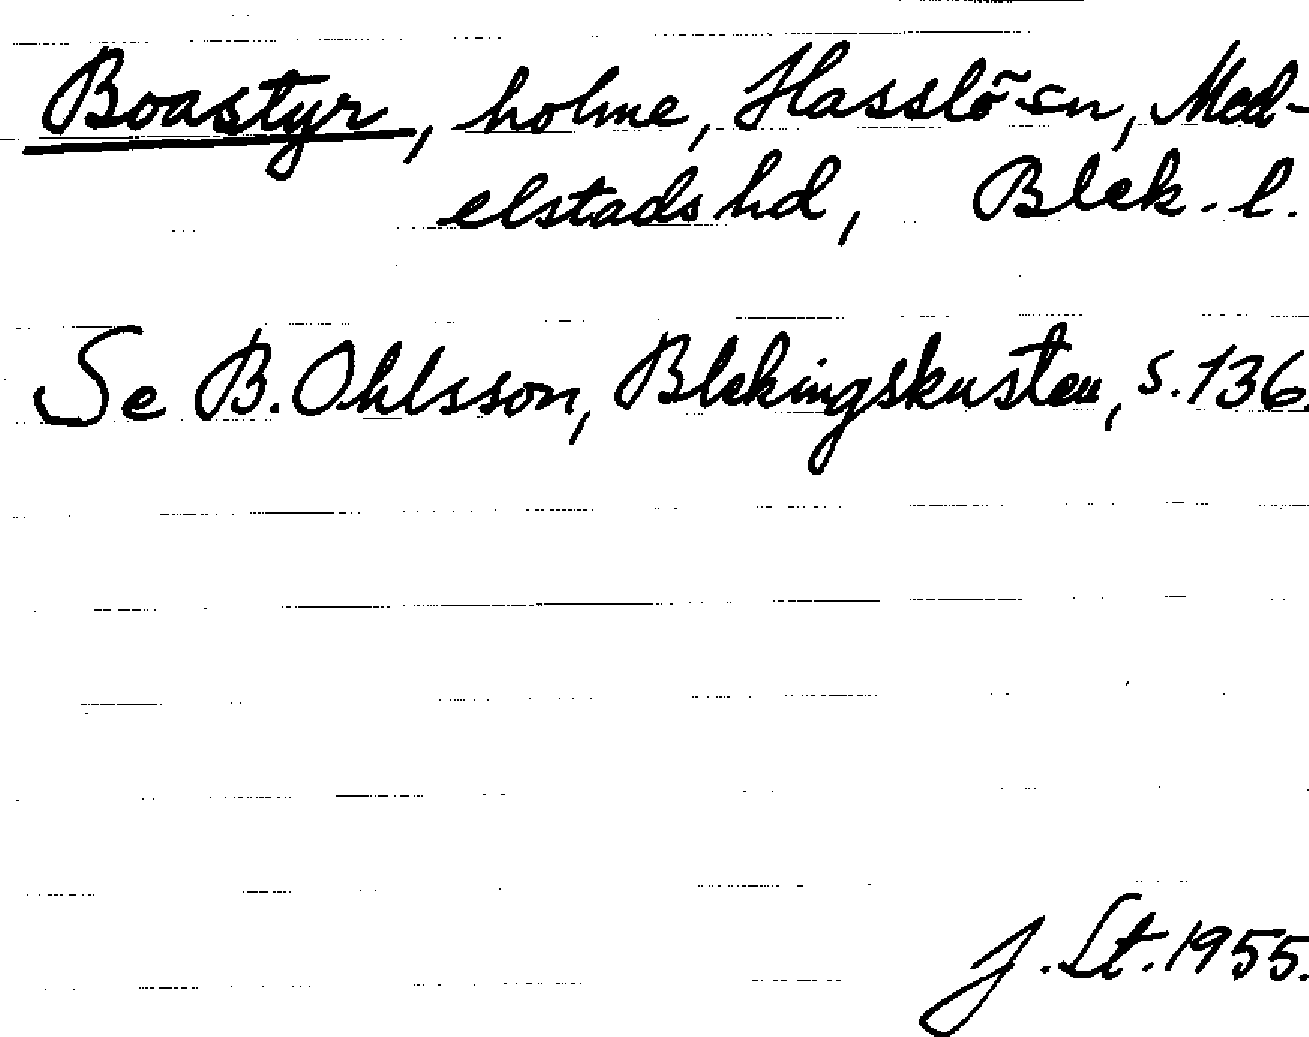 Boastyr, holme, Hasslö sn, Med-
elstads hd, Blek. l.
Se B. Ohlsson, Blekingskusten, s. 136.
J. Lt. 1955.